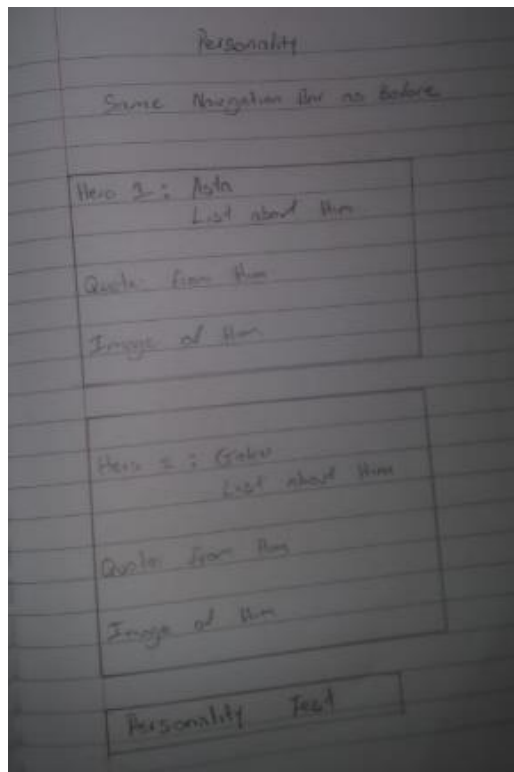 Personality
Same Navigation Bar as before
Hero 1 : Asta
List about Him
Quote from Him
Image of Him
Hero 2 : Goku
List about Him
Quote from Him
Image of Him
Personality Test